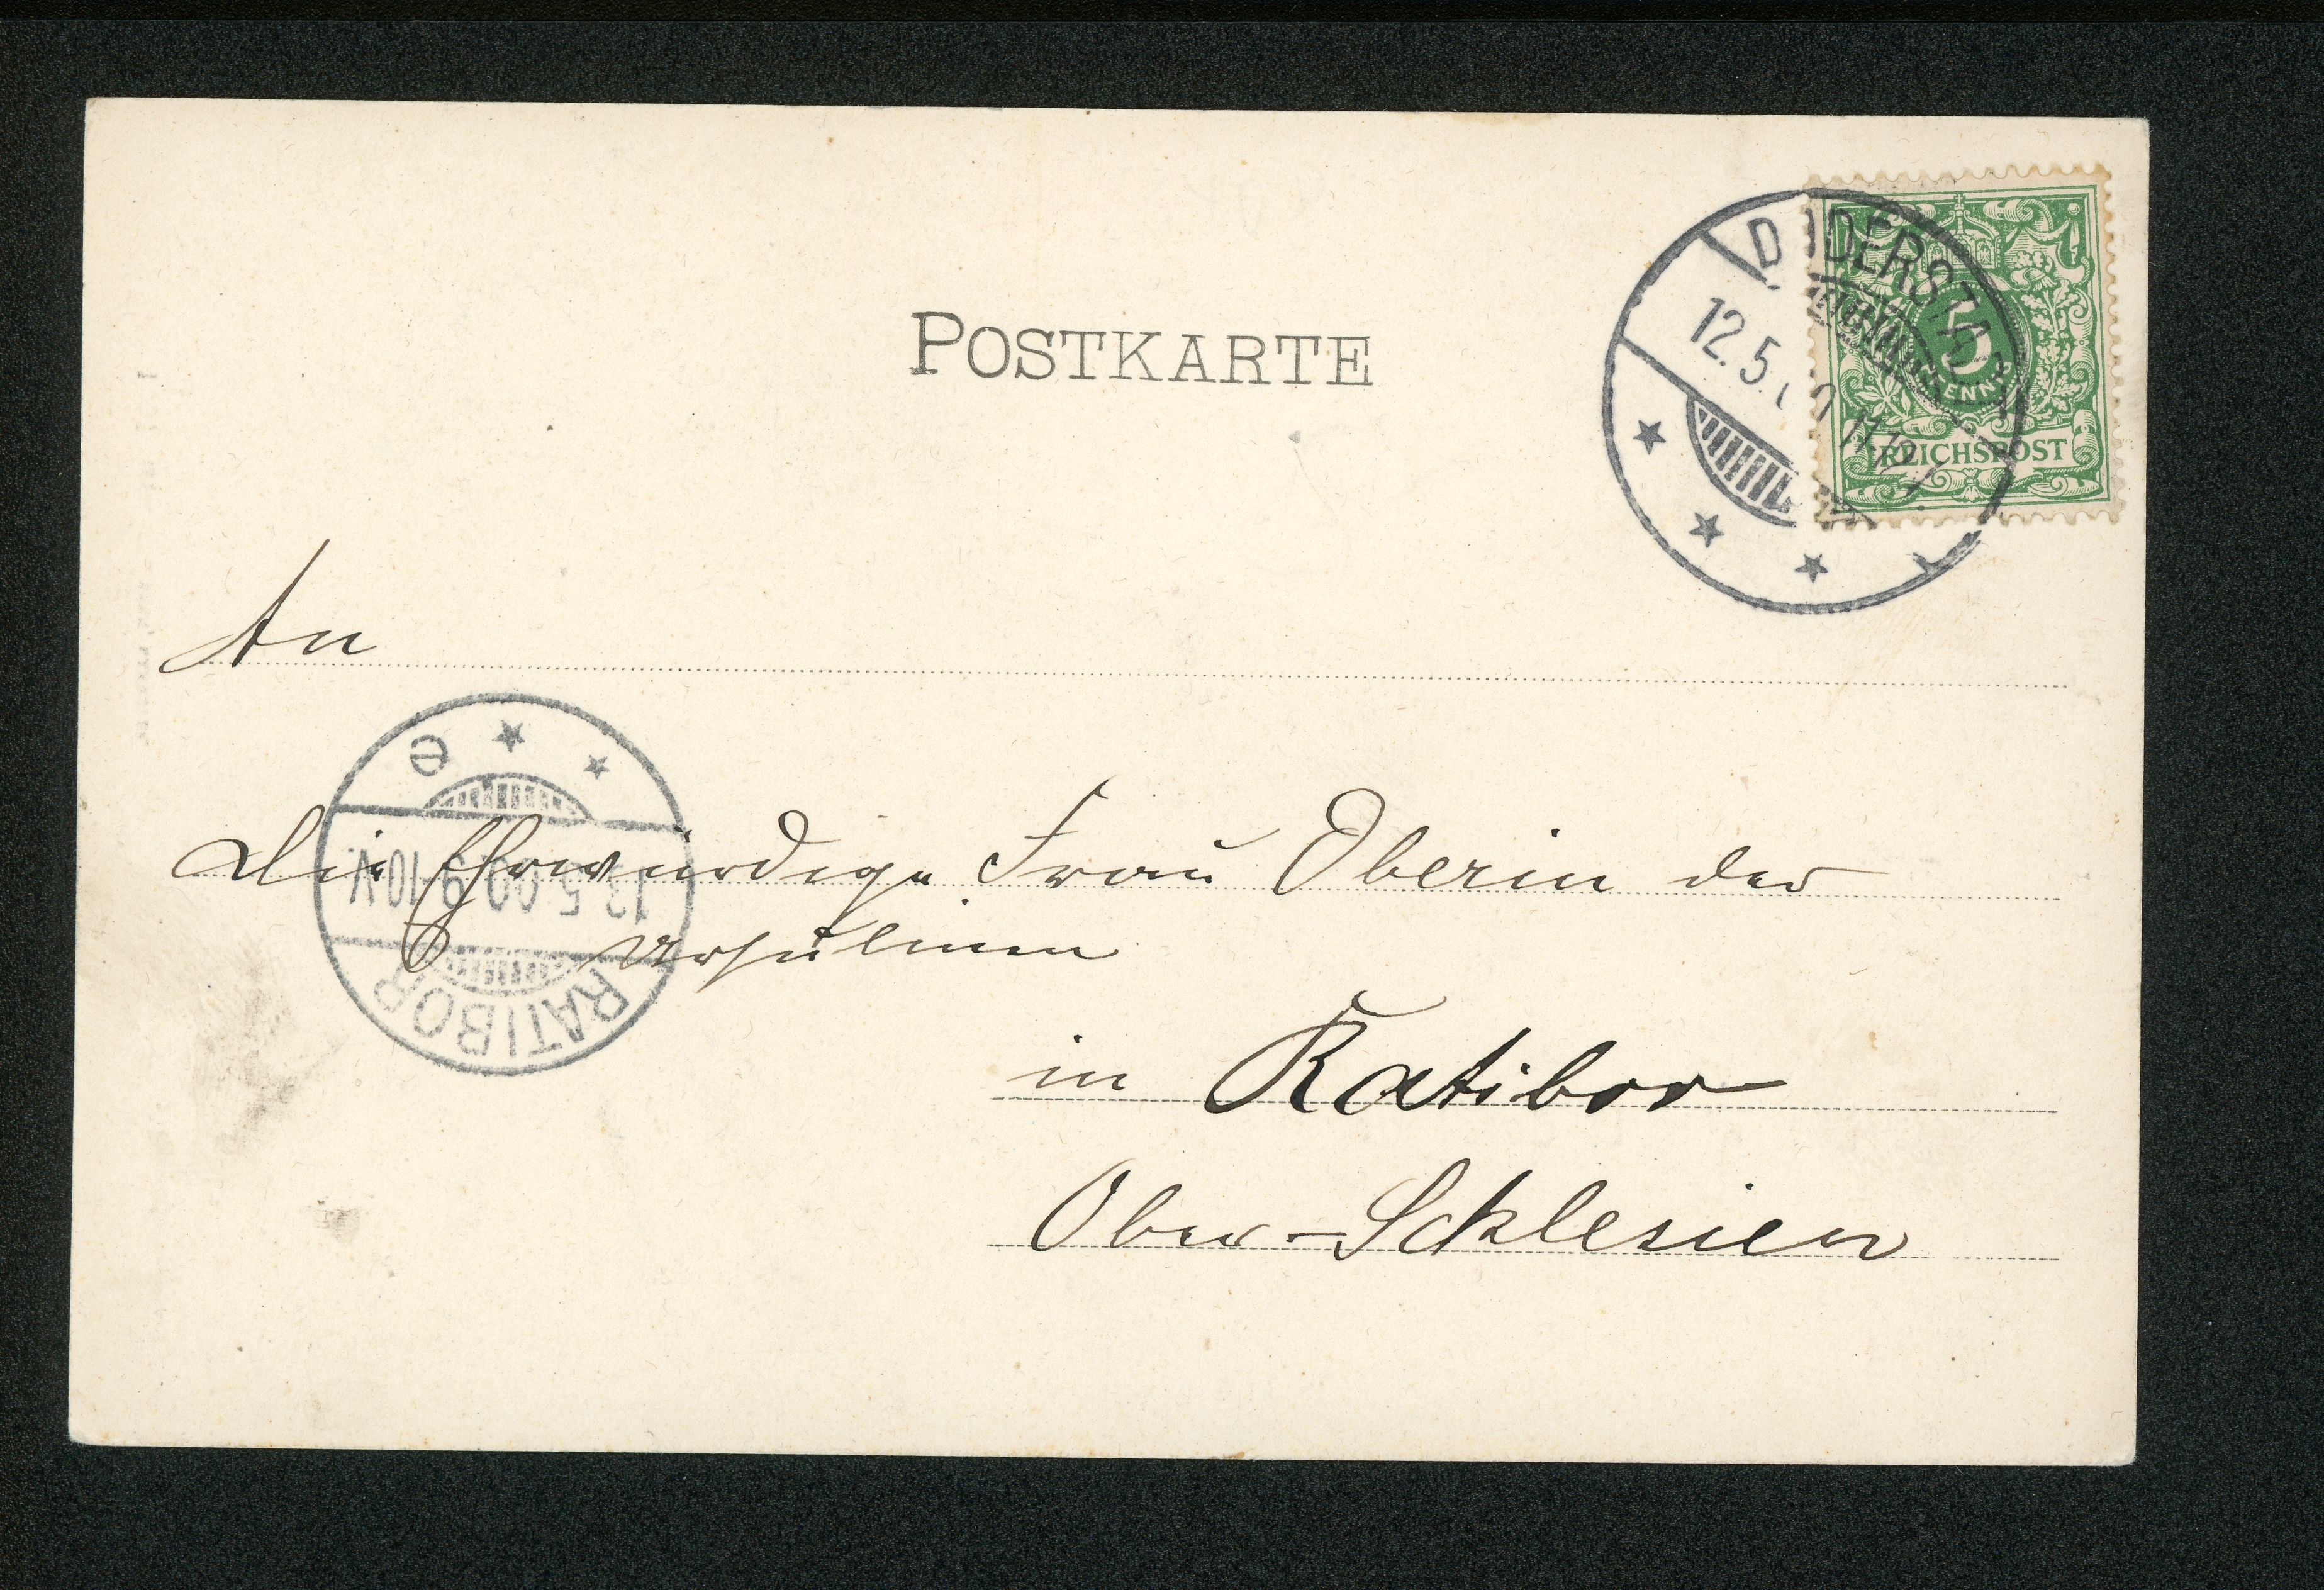 POSTKARTE
DUDERSTADT
12.5.00 11-12V.
5
PFENNIG
REICHSPOST
An
die Ehrwürdige Frau Oberin der
Ursulinen
in Ratibor
Ober-Schlesien
RATIBOR
13.5.00 9-10V.